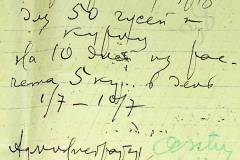 для 50 гусей и
курицу
на 10 дней из рас-
чета 5 кур. в день
1/7 – 10/7
Администратор